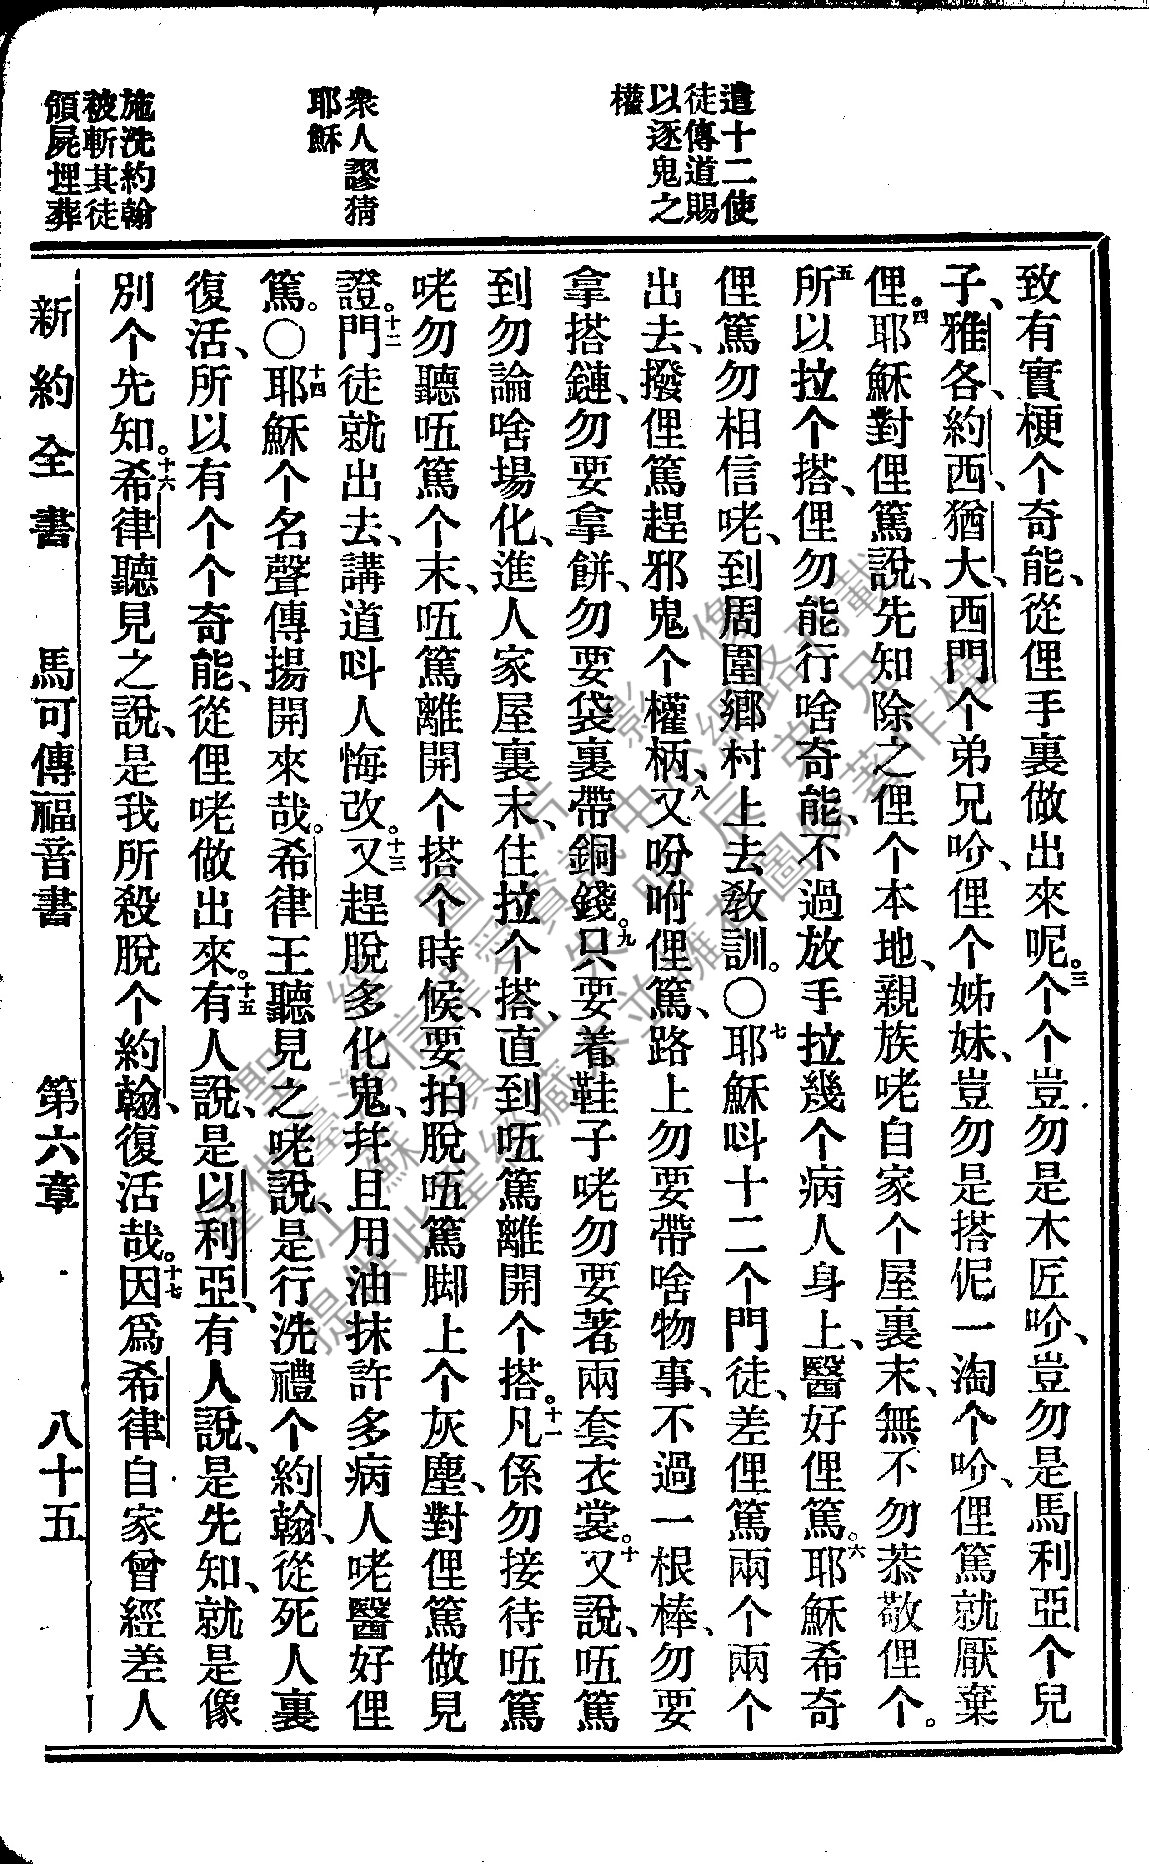 遣十二使
徒傳道賜
以逐鬼之
權
衆人謬猜
耶穌
施洗約翰
被斬其徒
領屍埋葬
致有實梗个奇能、從俚手裏做出來呢。三个个豈勿是木匠吤、豈勿是馬利亞个兒
子、雅各、約西、猶大、西門个弟兄吤、俚个姊妹、豈勿是搭伲一淘个吤、俚篤就厭棄
俚。四耶穌對俚篤說、先知除之俚个本地、親族咾自家个屋裏末、無不勿恭敬俚个。
五所以拉个搭、俚勿能行啥奇能、不過放手拉幾个病人身上、醫好俚篤。六耶穌希奇
俚篤勿相信咾、到周圍鄉村上去敎訓。〇七耶穌呌十二个門徒、差俚篤兩个兩个
出去、撥俚篤趕邪鬼个權柄、八又吩咐俚篤、路上勿要帶啥物事、不過一根棒、勿要
拿搭鏈、勿要拿餅、勿要袋裏帶銅錢。九只要着鞋子咾勿要著兩套衣裳。十又說、㕶篤
到勿論啥場化、進人家屋裏末、住拉个搭、直到㕶篤離開个搭。十一凡係勿接待㕶篤
咾勿聽㕶篤个末、㕶篤離開个搭个時候、要拍脫㕶篤脚上个灰塵、對俚篤做見
證。十二門徒就出去、講道呌人悔改。十三又趕脫多化鬼、幷且用油抹許多病人咾醫好俚
篤。〇十四耶穌个名聲傳揚開來哉。希律王聽見之咾說、是行洗禮个約翰、從死人裏
復活、所以有个个奇能、從俚咾做出來。十五有人說、是以利亞、有人說、是先知、就是像
別个先知。十六希律聽見之說、是我所殺脫个約翰、復活哉。十七因爲希律自家曾經差人
新約全書 馬可傳福音書 第六章 八十五